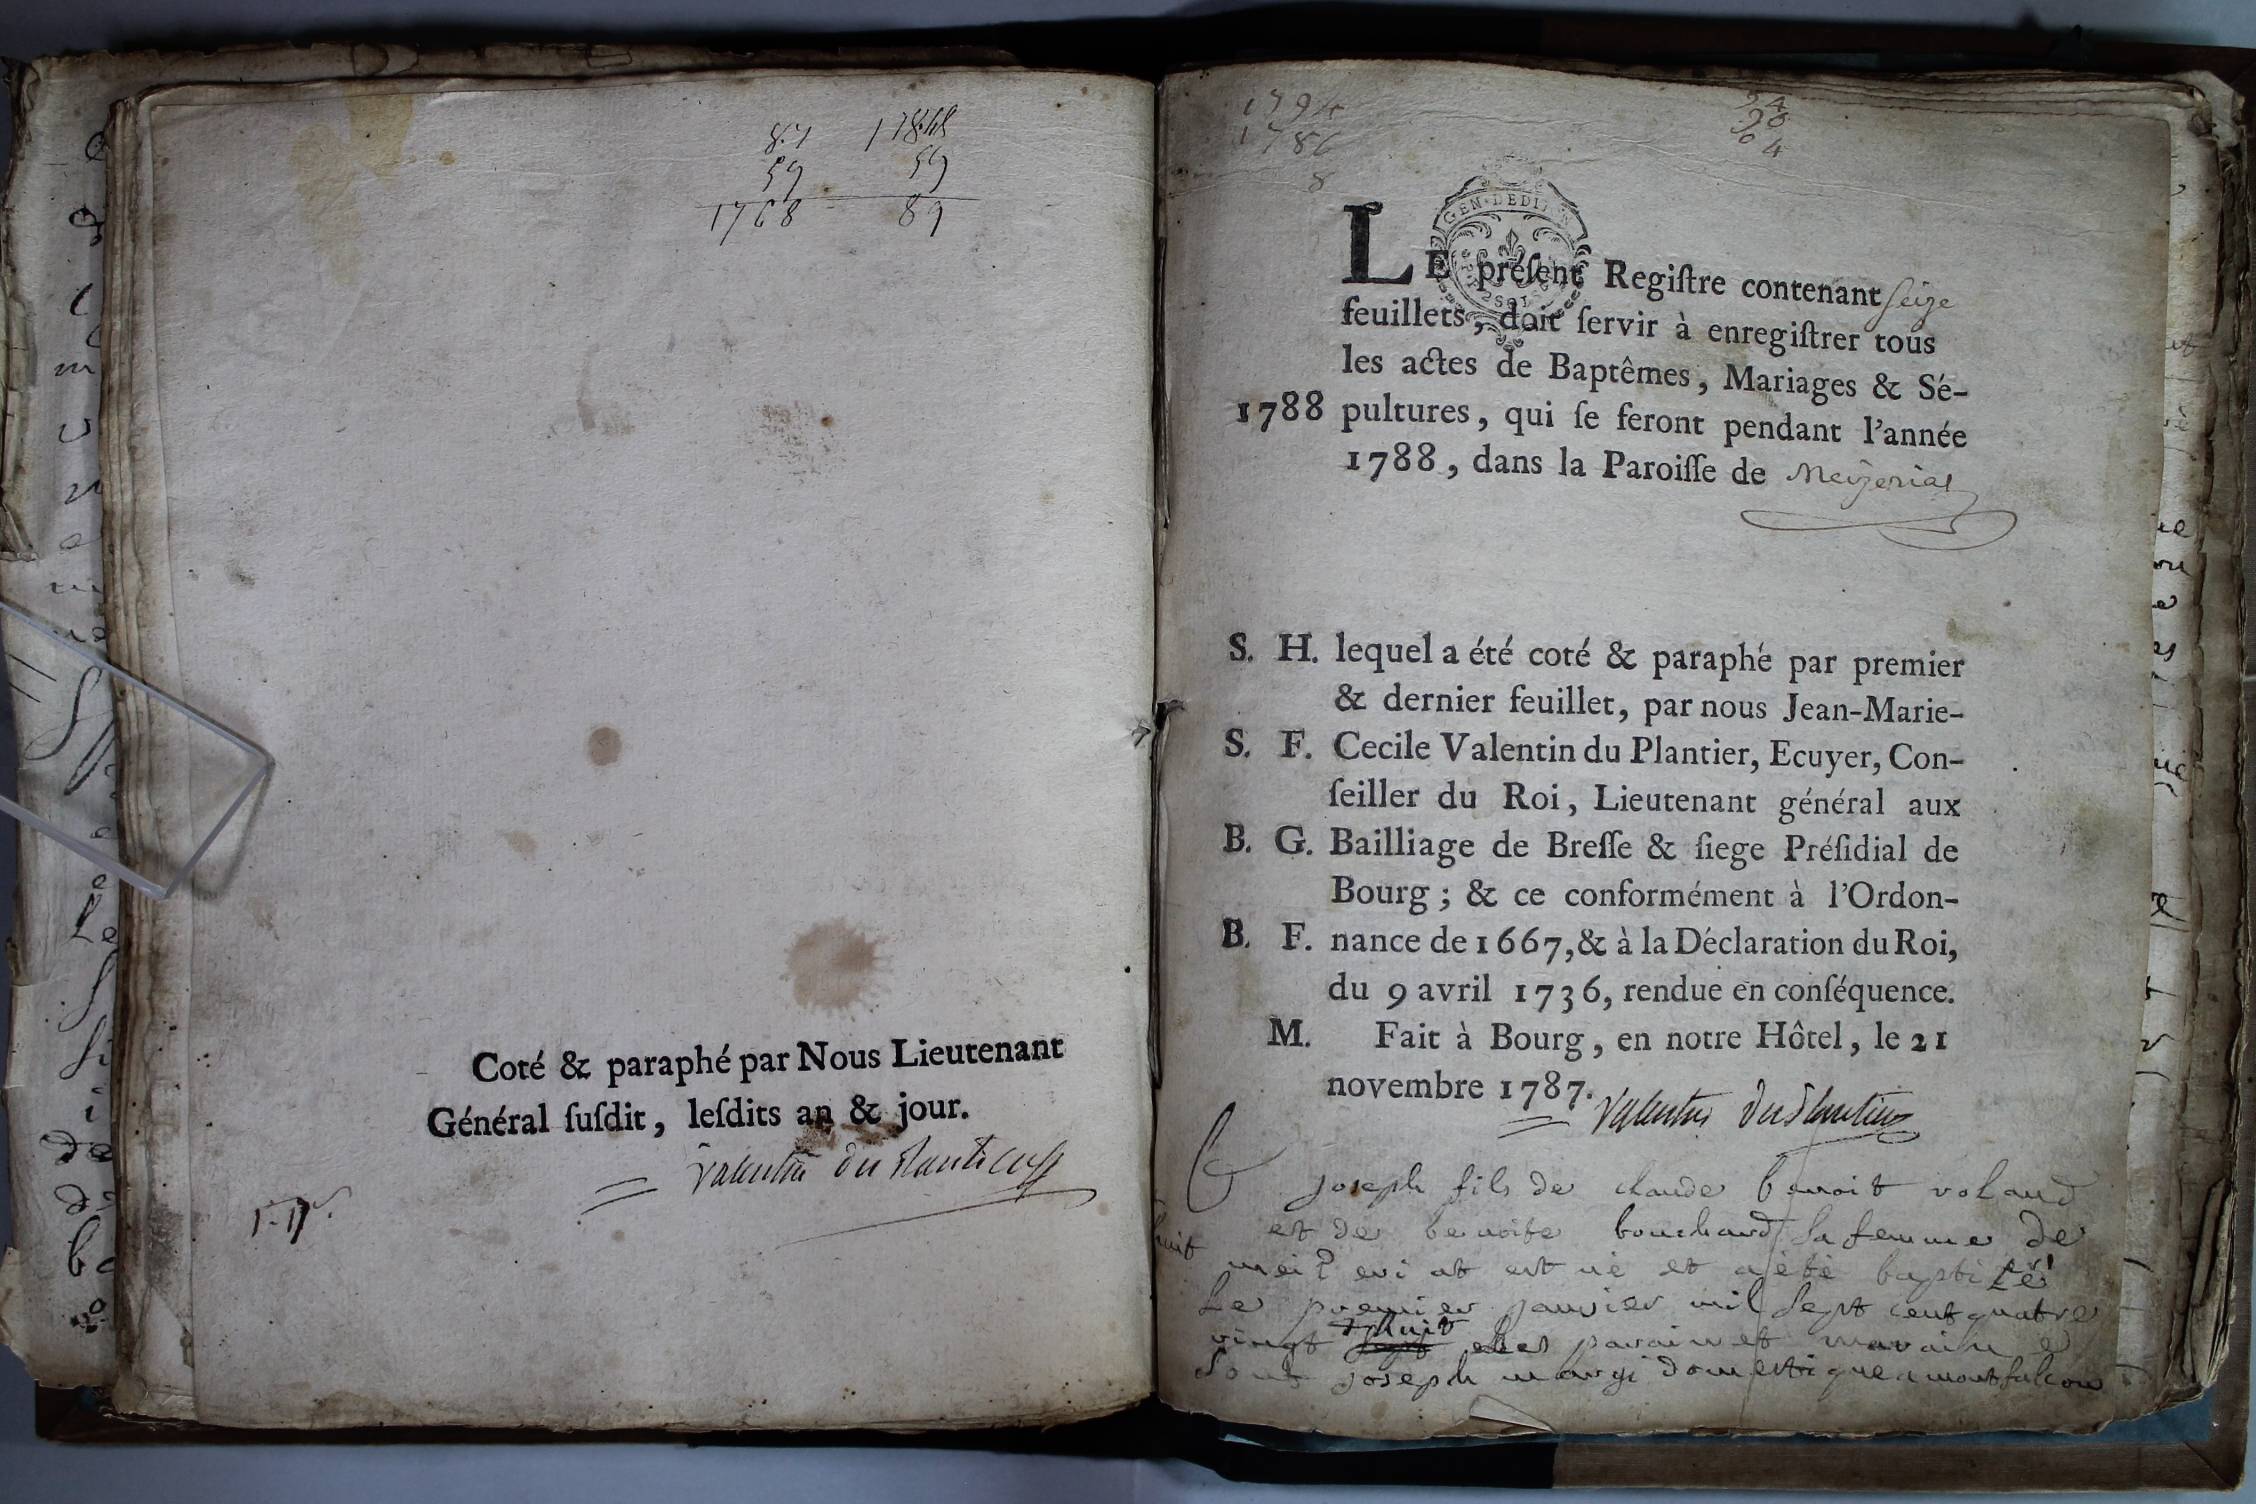 8.7 1788
59 59
1768 89
Coté & paraphé par Nous Lieutenant
Général ſuſdit, leſdits an & jour.
Valentin du Plantier
1794
1786
8
GEN · DEDI
LE préſent Regiſtre contenant seize
feuillets, doit ſervir à enregiſtrer tous
les actes de Baptêmes, Mariages & Sé-
1788 pultures, qui ſe feront pendant l'année
1788, dans la Paroiſſe de Meizeriat
S. H. lequel a été coté & paraphé par premier
& dernier feuillet, par nous Jean-Marie-
S. F. Cecile Valentin du Plantier, Ecuyer, Con-
ſeiller du Roi, Lieutenant général aux
B. G. Bailliage de Breſſe & ſiege Préſidial de
Bourg; & ce conformément à l'Ordon-
B. F. nance de 1667, & à la Déclaration du Roi,
du 9 avril 1736, rendue en conſéquence.
M. Fait à Bourg, en notre Hôtel, le 21
novembre 1787. Valentin du Plantier
joseph fils de claude benoit voland
et de benoite bouchard sa femme de
meizeriat est né et a été baptisé
le premier janvier mil sept cent quatre
vingt huit ses parain et maraine
sont joseph margi domestique a montfalcon